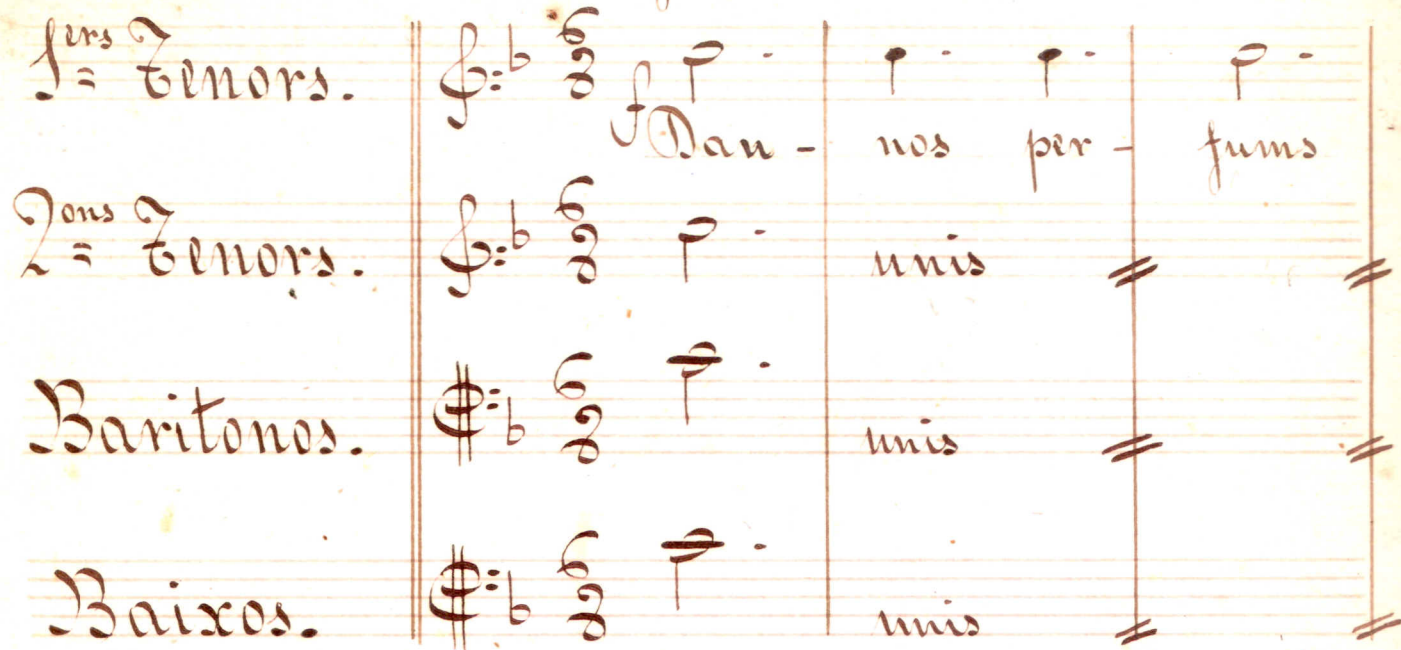 1ers Tenors. 6 8
f Dau - nos per - fums
2ons Tenors. 6 8 unis
Baritonos. 6 8 unis
Baixos. 6 8 unis